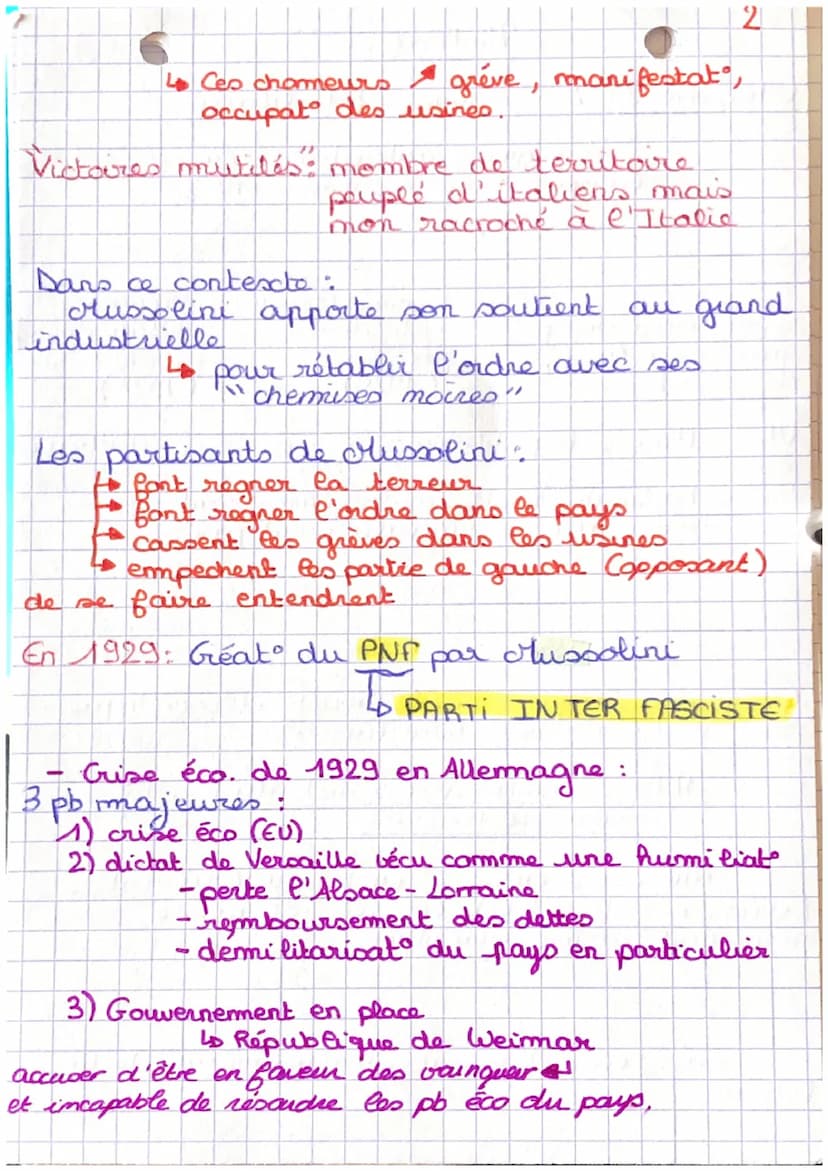 2
↳ Ces chomeurs ↗ gréve, manifestat°,
occupat° des usines.
"Victoires mutilés": nombre de territoire
peuplé d'italiens mais
non racroché à l'Italie
Dans ce contexte :
Mussolini apporte son soutient au grand
industrielle
↳ pour rétablir l'ordre avec ses
"chemises noires"
Les partisants de Mussolini :
↳ font regner la terreur
→ font regner l'ordre dans le pays
→ cassent les grèves dans les usines
→ empechent les partie de gauche (opposant)
de se faire entendrent
En 1929: Créat° du PNF par Mussolini
↳ PARTI INTER FASCISTE
- Crise éco. de 1929 en Allemagne :
3 pb majeures :
1) crise éco (EU)
2) dictat de Versaille vécu comme une humiliat°
- perte l'Alsace-Lorraine
- remboursement des dettes
- démilitarisat° du pays en particulier
3) Gouvernement en place
↳ République de Weimar
accuser d'être en faveur des vainquer
et incapable de résoudre les pb éco du pays.